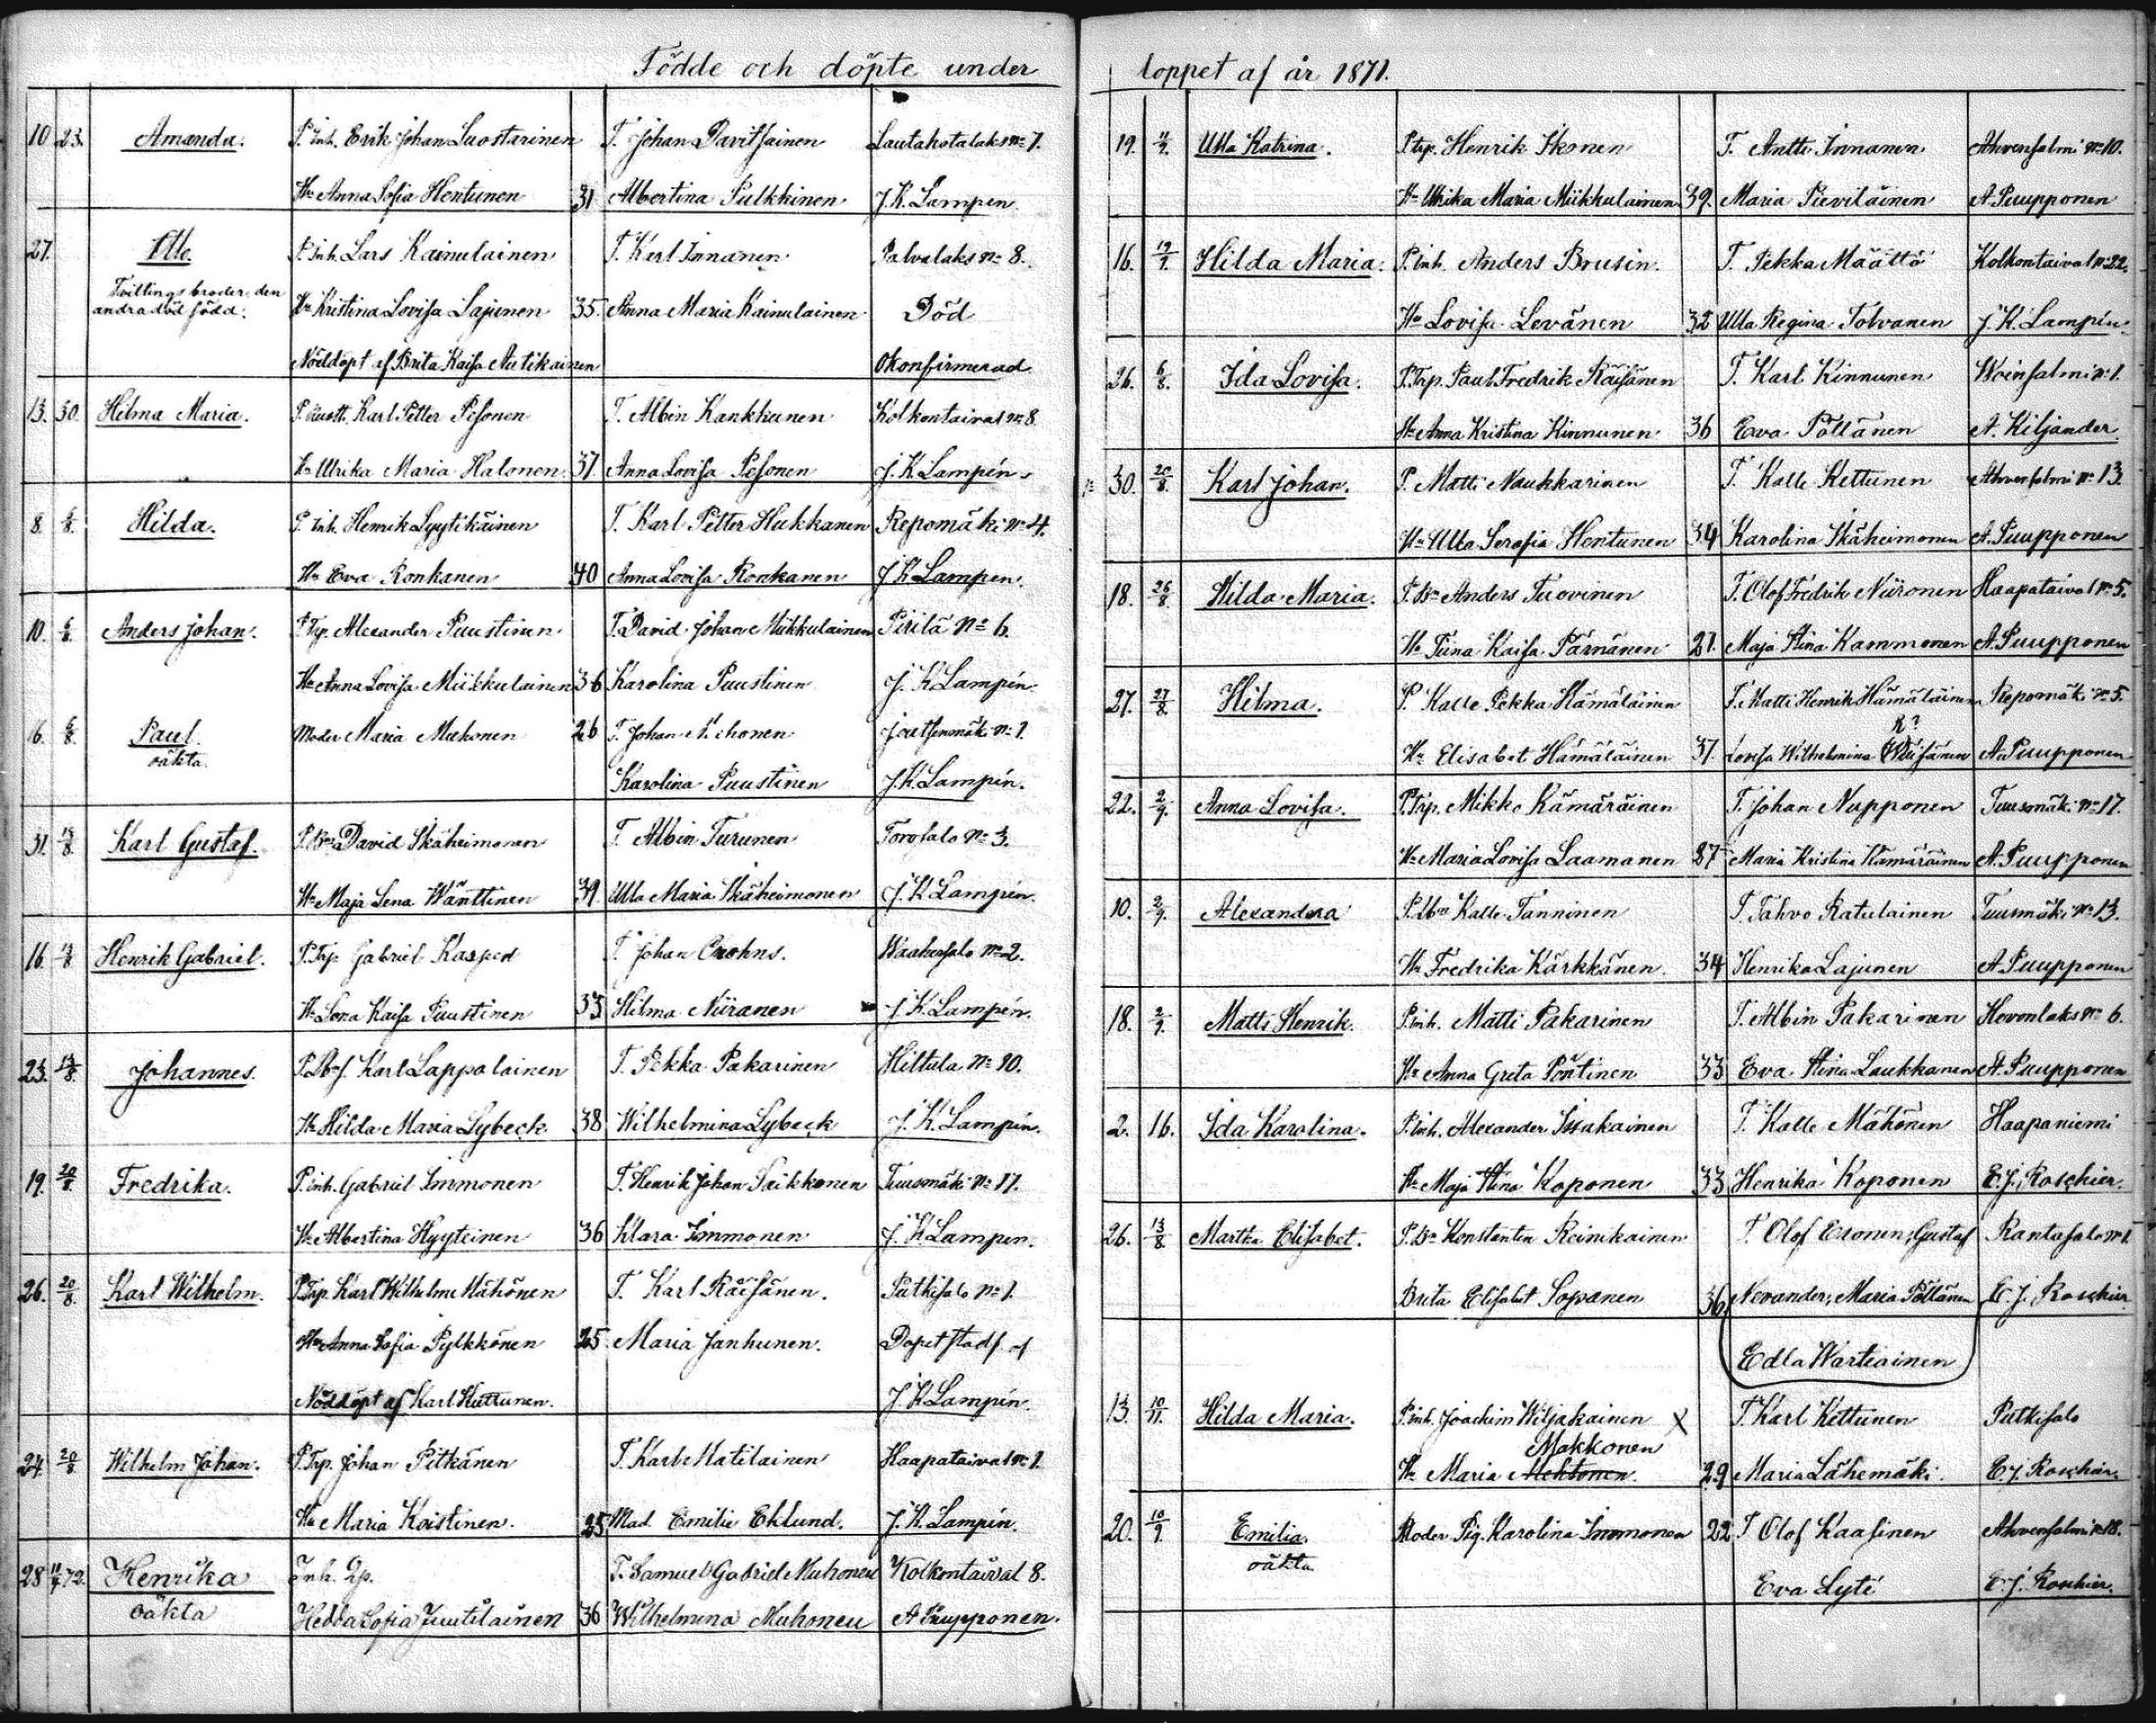 Födde och döpte under
10 23. Amanda. P. inh. Erik Johan Luostarinen T. Johan Davitsainen Lautakotalaks No 7.
Hu Anna Sofia Hentunen 31 Albertina Pulkkinen J. K. Lampen.
27. Otto. P. inh. Lars Kainulainen T. Karl Innanen Palvalaks No 8.
Tvillingsbroder, den andra död född. Hu Kristina Lovisa Lajunen 35. Anna Maria Kainulainen Död
Nöddöpt af Brita Kaisa Okonfirmerad
13. 30. Hilma Maria. P. Karl Petter Pesonen T. Albin Kankkunen Kolkontaival No 8.
Hu Ulrika Maria Halonen 37. Anna Lovisa Pesonen J. K. Lampén.
8. 6/8. Hilda. P. inh. Henrik Lyytikäinen T. Karl Petter Hukkanen Repomäki No 4.
Hu Eva Ronkanen 40 Anna Lovisa Ronkanen J. K. Lampen.
10. 6/8 Anders Johan. P. Trp. Alexander Puustinen T. David Johan Miikkulainen Pirilä No 6.
Hu Anna Lovisa Miikkulainen 36 Karolina Puustinen J. K. Lampén.
16. 6/8. Paul. Moder Maria Muhonen 26 T. Johan Muhonen Joutsenmäki No 1.
oäkta Karolina Puustinen J. K. Lampén.
31. 13/8 Karl Gustaf. P. Bn David Ikäheimonen T. Albin Turunen Torosalo No 3.
Hu Maja Lena Wänttinen 39. Ulla Maria Ikäheimonen J. K. Lampén.
16. 13/8 Henrik Gabriel. P. Trp. Gabriel Kasper T. Johan Crohns. Waahersalo No 2.
Hu Lena Kaisa Puustinen 33 Hilma Niiranen J. K. Lampén.
23. 13/8 Johannes. Karl Lappalainen T. Pekka Pakarinen Hiltula No 10.
Hu Hilda Maria Lybeck 38 Wilhelmina Lybeck J. K. Lampén.
19. 20/8. Fredrika. P. inh. Gabriel Immonen T. Henrik Johan Saikkonen Tuusmäki No 17.
Hu Albertina Hyyteinen 36 Klara Immonen J. K. Lampen.
26. 20/8. Karl Wilhelm. P. Trp. Karl Wilhelm Mähönen T. Karl Räisänen. Putkisalo No 1.
Hu Anna Sofia Pylkkönen 25 Maria Janhunen. Dopet stadf. af
Nöddöpt af Karl Huttunen. J. K. Lampén.
24. 20/8 Wilhelm Johan. P. Trp. Johan Pitkänen T. Karl Matilainen Haapataival No 1.
Hu Maria Koistinen. 25 Mad. Emilie Eklund. J. K. Lampén.
28 72. Henrika Inh. Qp. T. Samuel Gabriel Muhonen Kolkontaival 8.
oäkta Hedda Sofia Juutilainen 36 Wilhelmina Muhonen A Puupponen.
loppet af år 1871.
19. Ulla Katrina. P. trp. Henrik Ikonen T. Antti Innanen Ahvensalmi No 10.
Hu Ulrika Maria Miikkulainen 39. Maria Pieviläinen A Puupponen
16. Hilda Maria. P. inh. Anders Brusin. T. Pekka Määttö Kolkontaival No 22.
Hu Lovisa Levänen 32 Ulla Regina Tolvanen J. K. Lampén.
26. 6/8. Ida Lovisa. P. Trp. Paul Fredrik Räisänen T. Karl Kinnunen Woinsalmi No 1.
Hu Anna Kristina Kinnunen 36 Eva Pöllänen A. Kiljander.
30. 20/8. Karl Johan. P. Matti Naukkarinen T. Kalle Kettunen Ahvensalmi No 13.
Hu Ulla Serafia Hentunen 34 Karolina Ikäheimonen A. Puupponen
18. 26/8. Hilda Maria. P. Bn Anders Tuovinen T. Olof Fredrik Niironen Haapataival No 5.
Hu Tiina Kaisa Pärnänen 27. Maja Stina Kammonen A. Puupponen
27. 27/8. Hilma. P. Kalle Pekka Hämäläinen T. Matti Henrik Hämäläinen Repomäki No 5.
R?
Hu Elisabet Hämäläinen 37. Lovisa Wilhelmina A. Puupponen
22. 2/9. Anna Lovisa. P. Trp. Mikko Kämäräinen T. Johan Nupponen Tuusmäki No 17.
Hu Maria Lovisa Laamanen 27 Maria Kristina Kämäräinen A. Puupponen
10. 2/9. Alexandra Kalle Tanninen T. Tahvo Ratulainen Tuusmäki No 13.
Hu Fredrika Kärkkänen. 34 Henrika Lajunen A. Puupponen
18. 2/9. Matts Henrik. P. inh. Matti Pakarinen T. Albin Pakarinen Hevonlaks No 6.
Hu Anna Greta Pöntinen 33 Eva Stina Laukkanen A. Puupponen
2. 16. Ida Karolina. P. inh. Alexander Issakainen T. Kalle Mähönen Haapaniemi
Hu Maja Stina Koponen 33 Henrika Koponen E. J. Roschier.
26. 13/8 Martha Elisabet. P. Bn Konstantin Reinikainen T. Olof Eronen, Gustaf Rantasalo No 1.
Brita Elisabet Sopanen 36 Nevander, Maria Pöllänen E. J. Roschier
Edla Wartiainen
13. 10/11. Hilda Maria. P. inh. Joachim Wiljakainen X T. Karl Kettunen Putkisalo
Makkonen
Hu Maria Mehtonen. 29 Maria Lähemäki. E. J. Roschier.
20. 10/9. Emilia. Moder Pig. Karolina Immonen 22 T Olof Kaasinen Ahvensalmi No 18.
oäkta Eva Lyti E. J. Roschier.